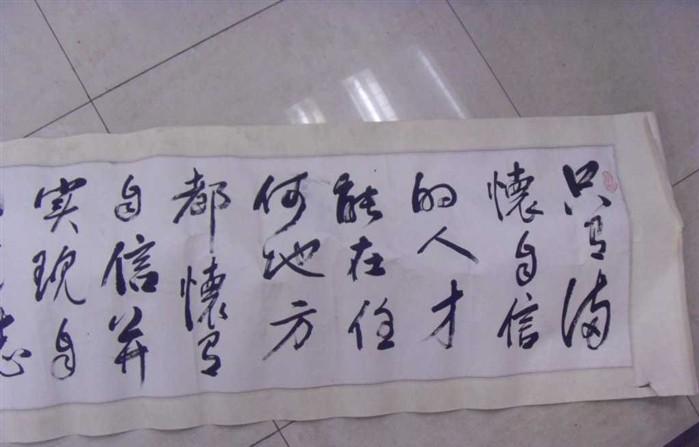 只有满
懷自信
的人才
能在任
何地方
都懷有
自信并
实现自
志